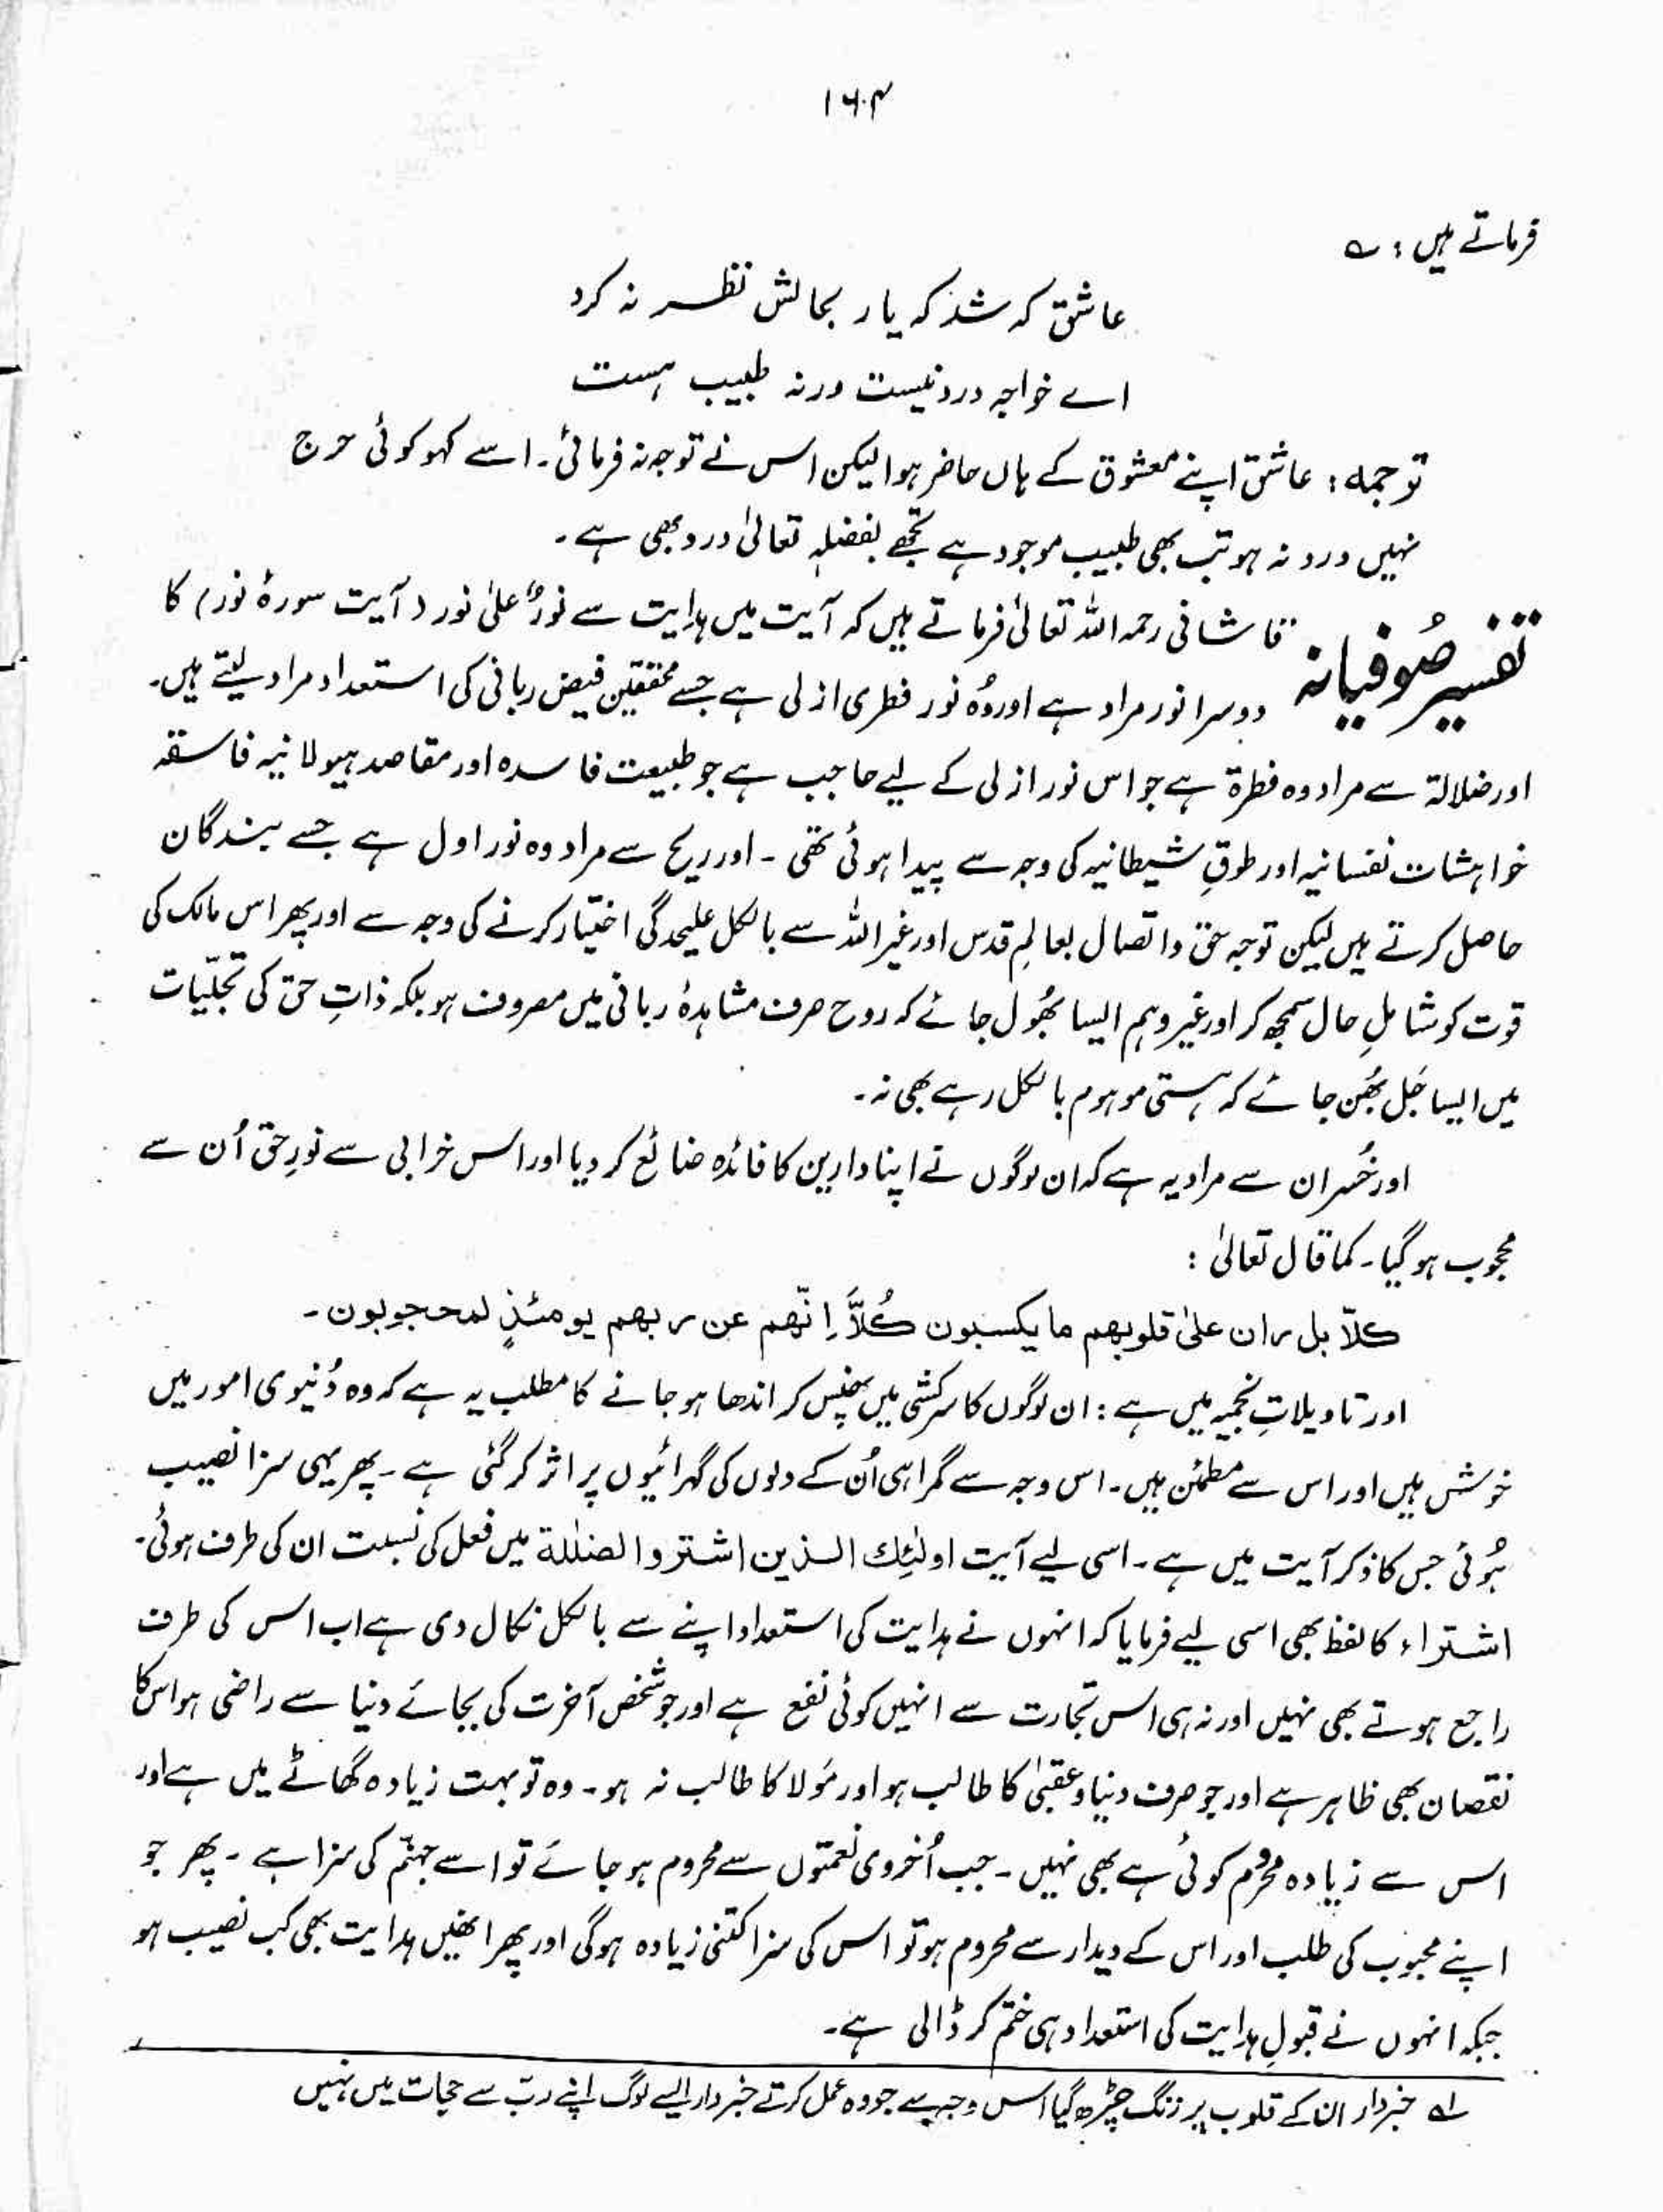 ۱۶۴
فرماتے ہیں : ؎
عاشق کہ شد کہ یار بحالش نظر نہ کرد
اے خواجہ درد نیست ورنہ طبیب ہست
ترجمہ : عاشق اپنے معشوق کے ہاں حاضر ہوا لیکن اس نے توجہ نہ فرمائی۔ اسے کہو کوئی حرج
نہیں درد نہ ہو تب بھی طبیب موجود ہے تجھے بفضلہٖ تعالیٰ درد بھی ہے۔
تفسیر صُوفیانہ قاشانی رحمہ اللہ تعالیٰ فرماتے ہیں کہ آیت میں ہدایت سے نورٌ علیٰ نور (آیت سورۂ نور) کا
دوسرا نور مراد ہے اور وُہ نور فطری ازلی ہے جسے محققین فیض ربانی کی استعداد مراد لیتے ہیں۔
اور ضلالۃ سے مراد وہ فطرۃ ہے جو اس نور ازلی کے لیے حاجب ہے جو طبیعت فاسدہ اور مقاصد ہیولانیہ فاسقہ
خواہشات نفسانیہ اور طوقِ شیطانیہ کی وجہ سے پیدا ہوئی تھی ۔ اور ربح سے مراد وہ نور اول ہے جسے بندگان
حاصل کرتے ہیں لیکن توجہ حق و اتصال بعالمِ قدس اور غیر اللہ سے بالکل علیحدگی اختیار کرنے کی وجہ سے اور پھر اس مالک کی
قوت کو شاملِ حال سمجھ کر اور غیر وہم ایسا بھُول جائے کہ روح صرف مشاہدۂ ربانی میں مصروف ہو بلکہ ذاتِ حق کی تجلّیات
میں ایسا جَل بھُن جائے کہ ہستی موہوم بالکل رہے بھی نہ۔
اور خُسران سے مراد یہ ہے کہ ان لوگوں نے اپنا دارین کا فائدہ ضائع کر دیا اور اس خرابی سے نورِ حق اُن سے
محجوب ہو گیا۔ کما قال تعالیٰ :
کلّا بل ران علیٰ قلوبھم ما یکسبون کُلَّا اِنّھم عن ربھم یومئذٍ لمحجوبون۔
اور تاویلاتِ نجمیہ میں ہے : ان لوگوں کا سرکشی میں پھنس کر اندھا ہو جانے کا مطلب یہ ہے کہ وہ دُنیوی امور میں
خوش ہیں اور اس سے مطمئن ہیں۔ اس وجہ سے گمراہی اُن کے دلوں کی گہرائیوں پر اثر کر گئی ہے۔ پھر یہی سزا نصیب
ہُوئی جس کا ذکر آیت میں ہے۔ اسی لیے آیت اولٰئک الذین اشتروا الضلٰلۃ میں فعل کی نسبت ان کی طرف ہوئی۔
اشتراء کا لفظ بھی اسی لیے فرمایا کہ انہوں نے ہدایت کی استعداد اپنے سے بالکل نکال دی ہے اب اس کی طرف
راجع ہوتے بھی نہیں اور نہ ہی اس تجارت سے انہیں کوئی نفع ہے اور جو شخص آخرت کی بجائے دنیا سے راضی ہو اس کا
نقصان بھی ظاہر ہے اور جو صرف دنیا و عقبیٰ کا طالب ہو اور مَولا کا طالب نہ ہو۔ وہ تو بہت زیادہ گھاٹے میں ہے اور
اس سے زیادہ محروم کوئی ہے بھی نہیں ۔ جب اُخروی نعمتوں سے محروم ہو جائے تو اسے جہنّم کی سزا ہے ۔ پھر جو
اپنے محبوب کی طلب اور اس کے دیدار سے محروم ہو تو اس کی سزا کتنی زیادہ ہوگی اور پھر انھیں ہدایت بھی کب نصیب ہو
جبکہ انہوں نے قبولِ ہدایت کی استعداد ہی ختم کر ڈالی ہے۔
لہ خبردار ان کے قلوب پر زنگ چڑھ گیا اس وجہ سے جو وہ عمل کرتے خبردار ایسے لوگ اپنے ربّ سے حجاب میں نہیں